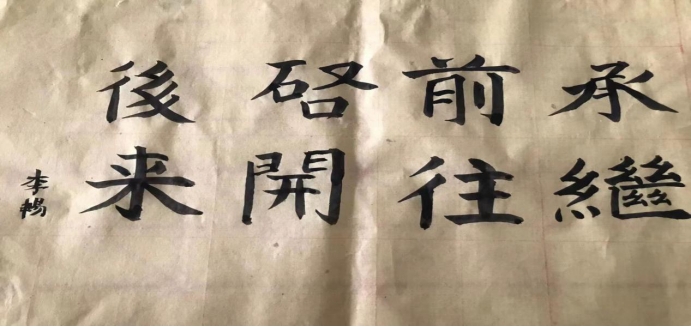 承前啓後
繼往開来
李暢